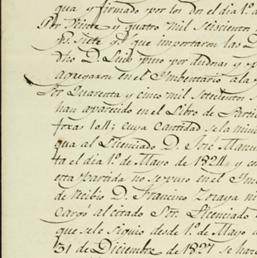 qua y firmado por los dos el dia 1º d
Por Veinte y quatro mil seiscientos
p.s siete g.s que importaron las D
dho D. Luis puso por dudosas y
agregaron en el Imbentario a la
Por Quarenta y cinco mil setecientos
han aparecido en el Libro de Parti
foxas 104: cuya Cantidad se la
qua al Lizenciado D. José Manu
ta el dia 1º de Mayo de 1824, y en
esta Partida no se puso en el Im
de Recibio D. Francisco Izaga
Cargo al citado Sor. Lizenciado
que se le siguio desde 1º de Mayo
31 de Diciembre de 1827 se hace